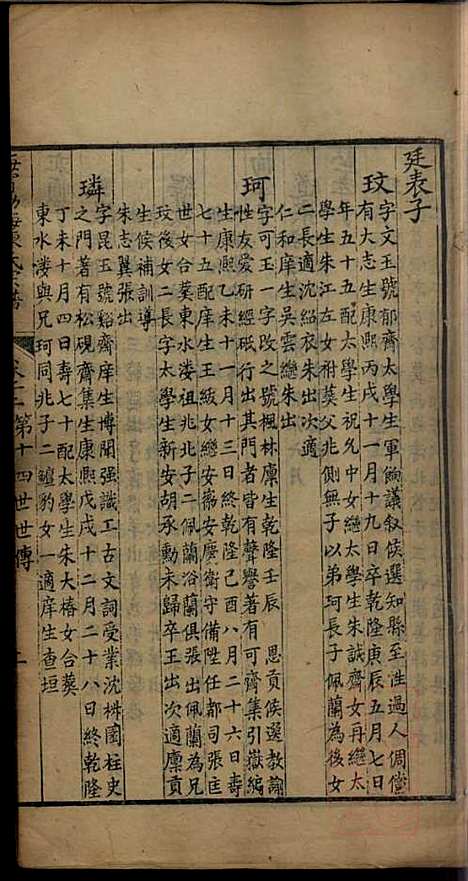 廷表子
玟
字文玉號郁齋太學生軍餉議敘候選知縣至性過人倜儻
有大志生康熙丙戌十一月十九日卒乾隆庚辰五月七日
年五十五配太學生祝允中女繼太學生朱誠齋女再繼太
學生朱江左女祔葵父兆側無子以弟珂長子佩蘭為後女
二長適沈絪衣朱出次適
仁和庠生吳雲繼朱出
珂
字可玉一字改之號楓林廩生乾隆壬辰 恩貢候選教諭
性友愛研經砥行出其門者皆有聲譽著有可齋集引嶽編
生康熙乙未十一月十三日終乾隆己酉八月二十六日壽
七十五配庠生王紱女繼安徽安廣衛守備陞任都司張庄
世女合葵東水溇祖兆北子二佩蘭浴蘭張出佩蘭為兄
玟後女二長字太學生新安胡承勳未歸卒王出次適廩貢
生候補訓導
朱志翼張出
璘
字昆玉號谿齋庠生博聞强識工古文詞受業沈椕園柱史
之門著有松硯齋集生康熙戊戌十二月二十八日終乾隆
丁未十月四日壽七十配太學生朱大椿女合葵
東水溇與兄珂同兆子二鱣豹女一適庠生查垣
第十四世世傳